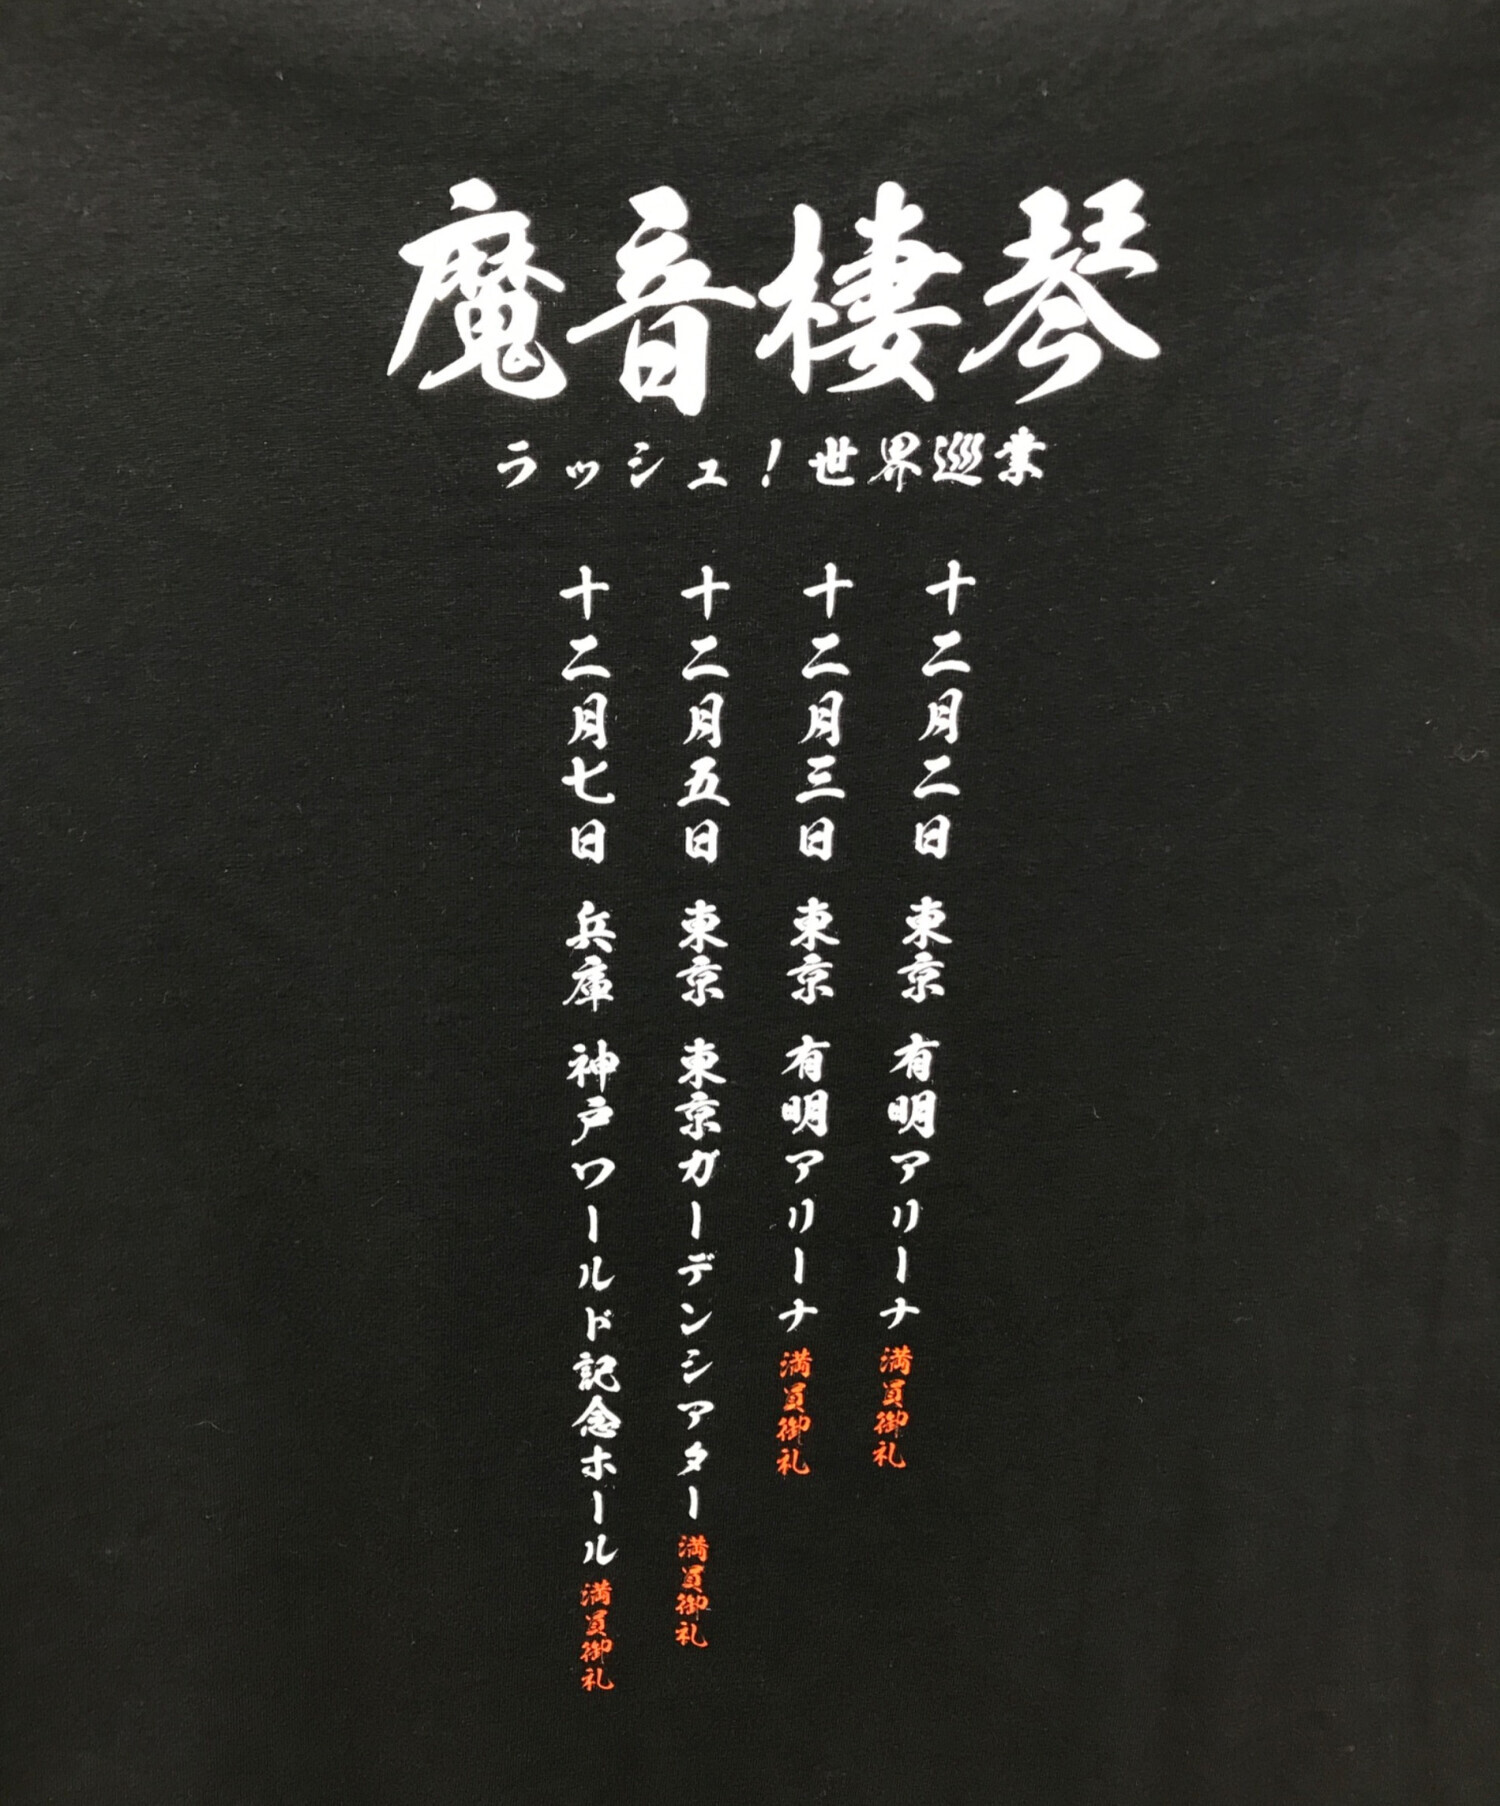 魔音棲琴
ラッシュ！世界巡業
十二月二日 東京 有明アリーナ 満員御礼
十二月三日 東京 有明アリーナ 満員御礼
十二月五日 東京 東京ガーデンシアター 満員御礼
十二月七日 兵庫 神戸ワールド記念ホール 満員御礼